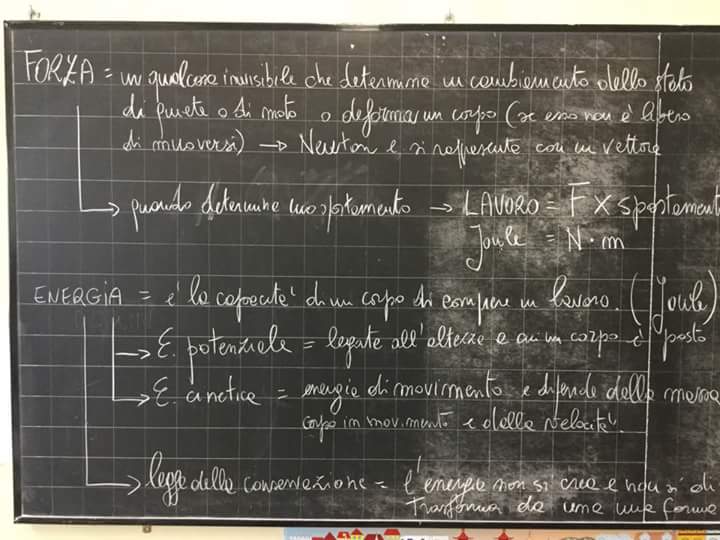 FORZA = un qualcosa invisibile che determina un cambiamento dello stato
di quiete o di moto o deforma un corpo (se esso non è libero
di muoversi) → Newton e si rappresenta con un vettore
quando determina uno spostamento → LAVORO = F X spostament
Joule = N·m
ENERGIA = è la capacità di un corpo di compiere un lavoro. (Joule)
E. potenziale = legata all'altezza a cui un corpo è posto
E. cinetica = energia di movimento e dipende dalla massa
corpo in movimento e dalla velocità.
legge della conservazione = l'energia non si crea e non si di
trasforma da una forma